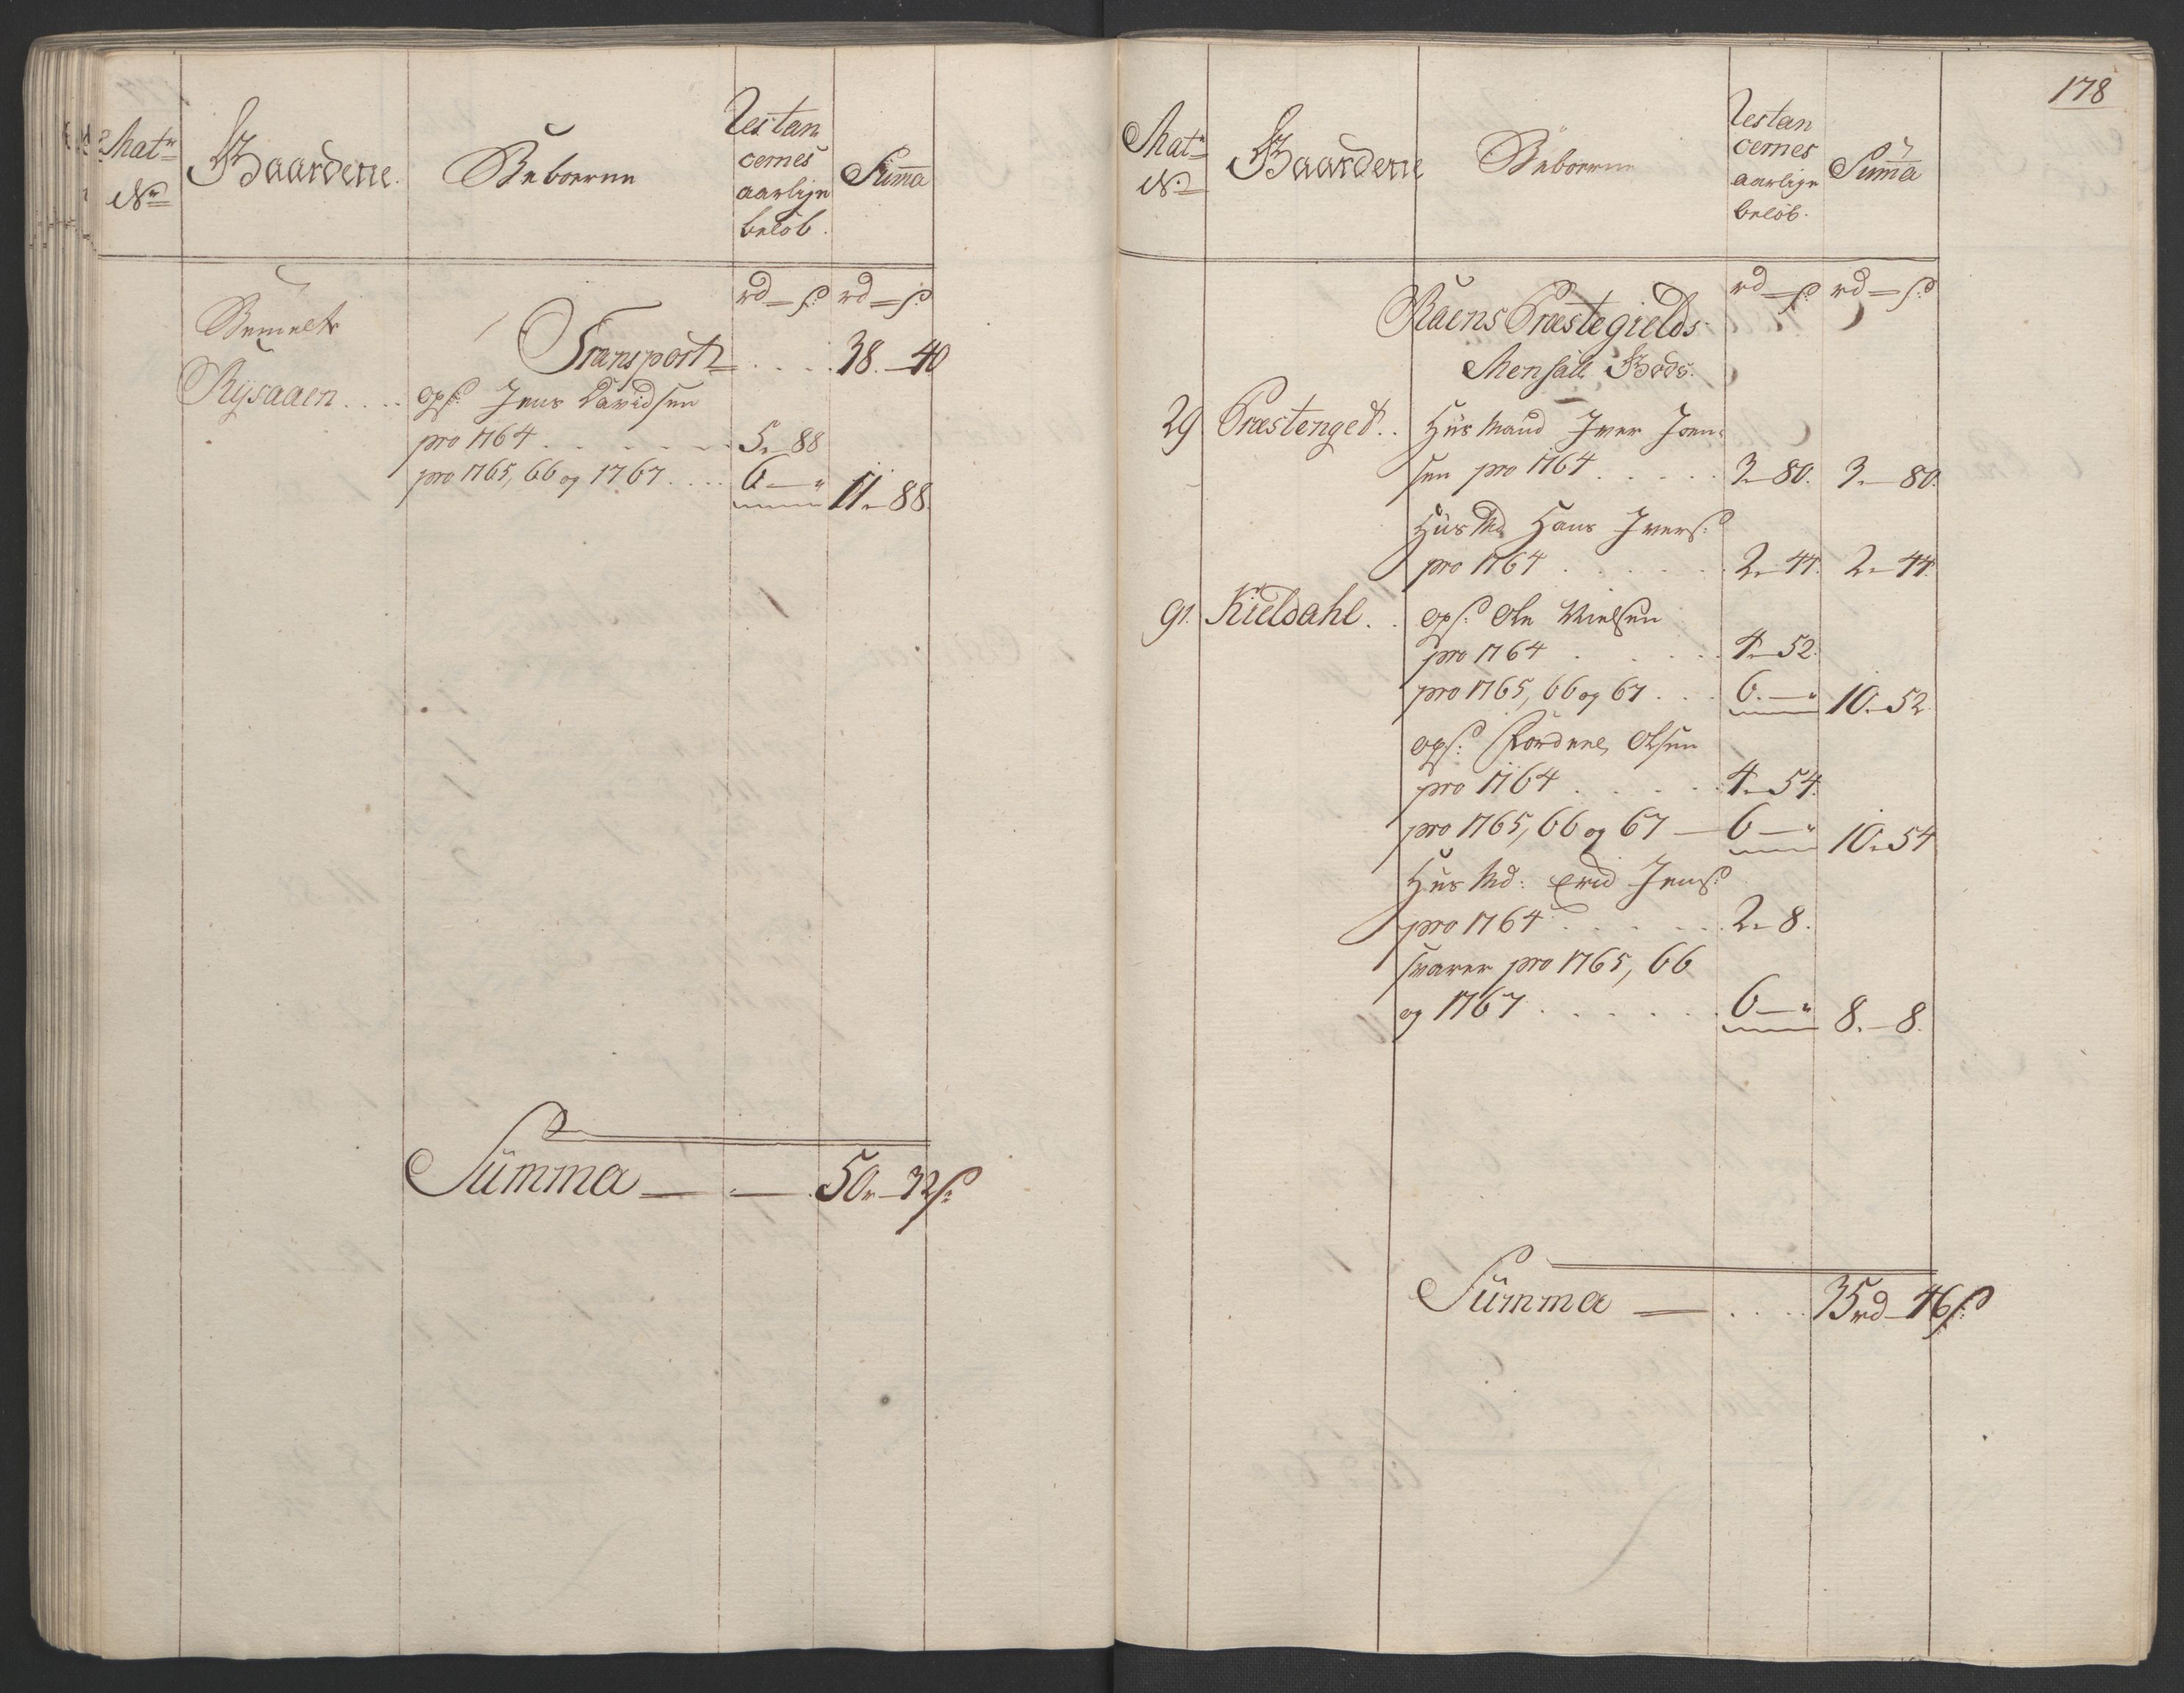 Mat:
No
Gaardene.
Beboerne
Restan
cernes
aarlige
beløb.
Summa
rd — s: rd — s:
Bemelte
Transport . . . . 38. — 40
Rysaaen . . . . ops: Jens Davidsen
pro 1764 . . . . . . 5. — 88
pro 1765, 66 og 1767 . . . . 6 — " 11. — 88.
Summa — . — 50. — 32 s:
178
Mat:
No
Gaardene
Beboerne
Restan
cernes
aarlige
beløb.
Summa
rd — s: rd — s:
Ranens Præstegields
Mensal Gods.
29 Præstenget . . Huusmand Iver Joen:
sen pro 1764 . . . . . 3. — 80. 3. — 80.
Huus Md Hans Ivers:
pro 1764 . . . . . . 2. — 44. 2. — 44.
91. Kieldahl . . ops: Ole Nielsen
pro 1764 . . . . . 4. — 52.
pro 1765, 66 og 67 . . . 6. — " 10. — 52
ops: Olsen
pro 1764 . . . . . 4. — 54.
pro 1765, 66 og 67 — 6 — " 10. — 54
Huus Md: Jens:
pro 1764 . . . . . . 2. — 8.
svarer pro 1765, 66
og 1767 . . . . . . 6 — " 8. — 8.
Summa — . . . . 35 rd — 46 s: